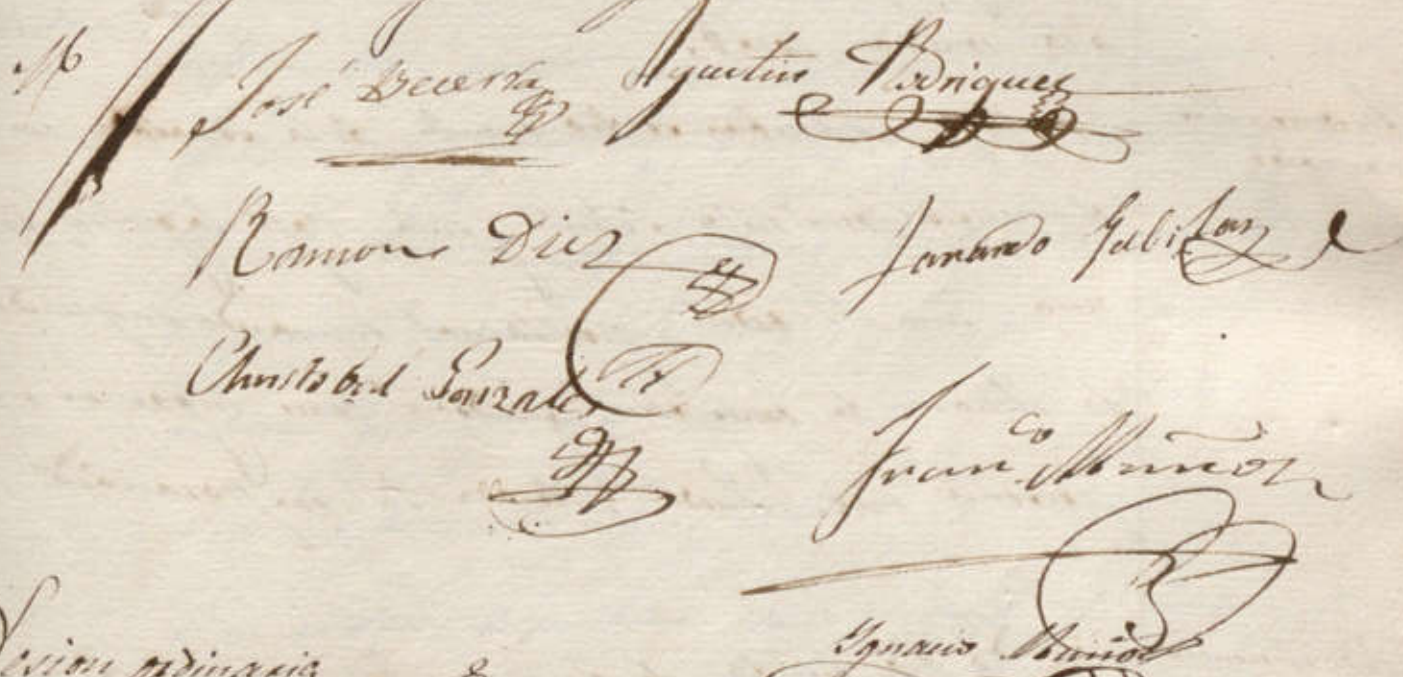 José Becerra Agustin Rodriguez
Ramon Diez
Christobal Gonzales
Fran.co Muñoz
Ignacio Muñoz
Sesion ordinaria